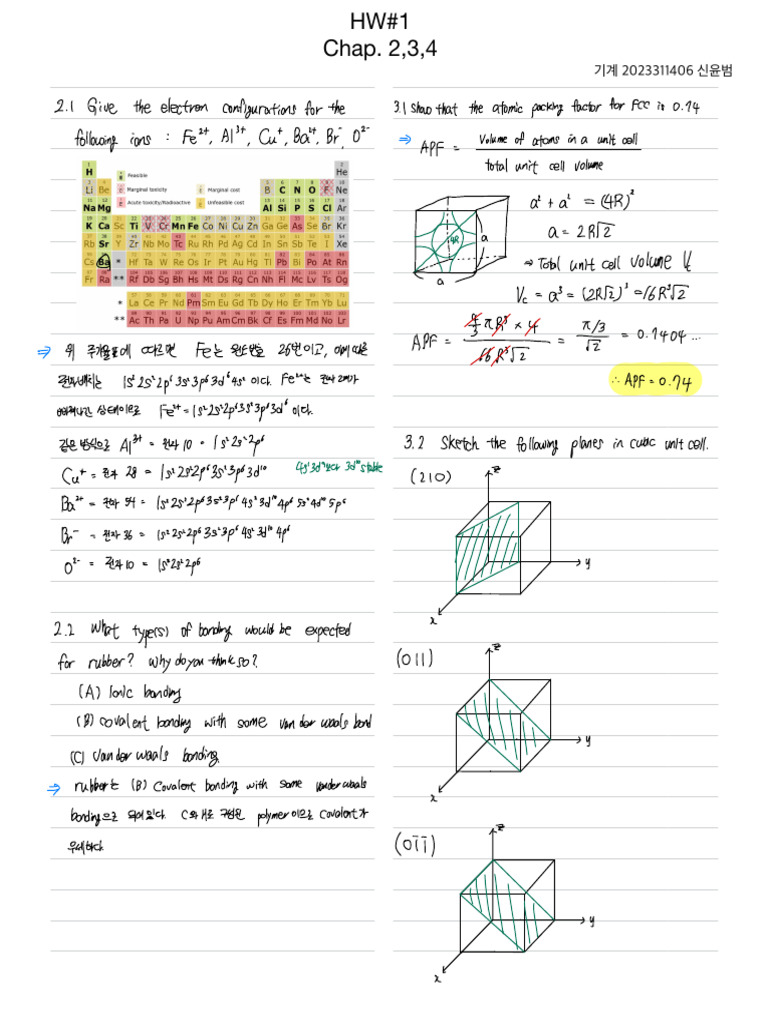 HW#1
Chap. 2,3,4
기계 2023311406 신윤범
2.1 Give the electron configurations for the
following ions : Fe²⁺, Al³⁺, Cu⁺, Ba²⁺, Br⁻, O²⁻
Feasible
Marginal toxicity
Marginal cost
Acute toxicity/Radioactive
Unfeasible cost
H He
Li Be B C N O F Ne
Na Mg Al Si P S Cl Ar
K Ca Sc Ti V Cr Mn Fe Co Ni Cu Zn Ga Ge As Se Br Kr
Rb Sr Y Zr Nb Mo Tc Ru Rh Pd Ag Cd In Sn Sb Te I Xe
Cs Ba * Hf Ta W Re Os Ir Pt Au Hg Tl Pb Bi Po At Rn
Fr Ra ** Rf Db Sg Bh Hs Mt Ds Rg Cn Nh Fl Mc Lv Ts Og
* La Ce Pr Nd Pm Sm Eu Gd Tb Dy Ho Er Tm Yb Lu
** Ac Th Pa U Np Pu Am Cm Bk Cf Es Fm Md No Lr
⇒ 위 주기율표에 따르면 Fe는 원자번호 26번이고, 이에 따른
전자배치는 1s²2s²2p⁶3s²3p⁶3d⁶4s² 이다. Fe²⁺는 전자 2개가
빠져나간 상태이므로 Fe²⁺ = 1s²2s²2p⁶3s²3p⁶3d⁶ 이다.
같은 방식으로 Al³⁺ = 전자 10 = 1s²2s²2p⁶
Cu⁺ = 전자 28 = 1s²2s²2p⁶3s²3p⁶3d¹⁰ 4s¹3d⁹보다 3d¹⁰ stable
Ba²⁺ = 전자 54 = 1s²2s²2p⁶3s²3p⁶4s²3d¹⁰4p⁶5s²4d¹⁰5p⁶
Br⁻ = 전자 36 = 1s²2s²2p⁶3s²3p⁶4s²3d¹⁰4p⁶
O²⁻ = 전자 10 = 1s²2s²2p⁶
2.2 What type(s) of bonding would be expected
for rubber? Why do you think so?
(A) Ionic bonding
(B) covalent bonding with some van der waals bond
(C) Van der waals bonding
⇒ rubber는 (B) Covalent bonding with some vander waals
bonding으로 되어있다. C와 H로 구성된 polymer이므로 covalent가
우세하다.
3.1 Show that the atomic packing factor for FCC is 0.74
⇒ APF = Volume of atoms in a unit cell
total unit cell volume
4R
a
a
a² + a² = (4R)²
a = 2R√2
⇒ Total unit cell volume Vc
Vc = a³ = (2R√2)³ = 16R³√2
APF = 4/3 πR³ × 4 / 16R³√2 = π/3 / √2 = 0.7404 ...
∴ APF = 0.74
3.2 Sketch the following planes in cubic unit cell.
(210)
z
y
x
(011)
z
y
x
(01̄1̄)
z
y
x